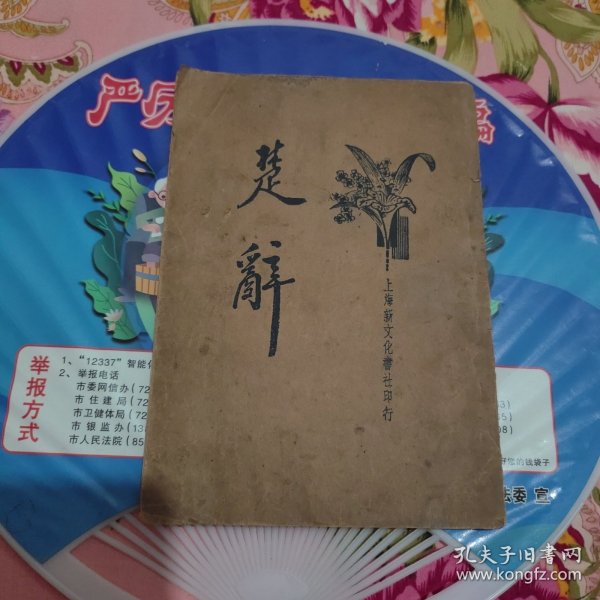 楚辭
上海新文化書社印行
严厉
骗
举报方式
1、“12337”智能
2、举报电话
市委网信办(72
市住建局(72
市卫健体局(7
市银监办(13
市人民法院(85
3)
5)
8)
的钱袋子
法委 宣
孔夫子旧书网
www.kongfz.com